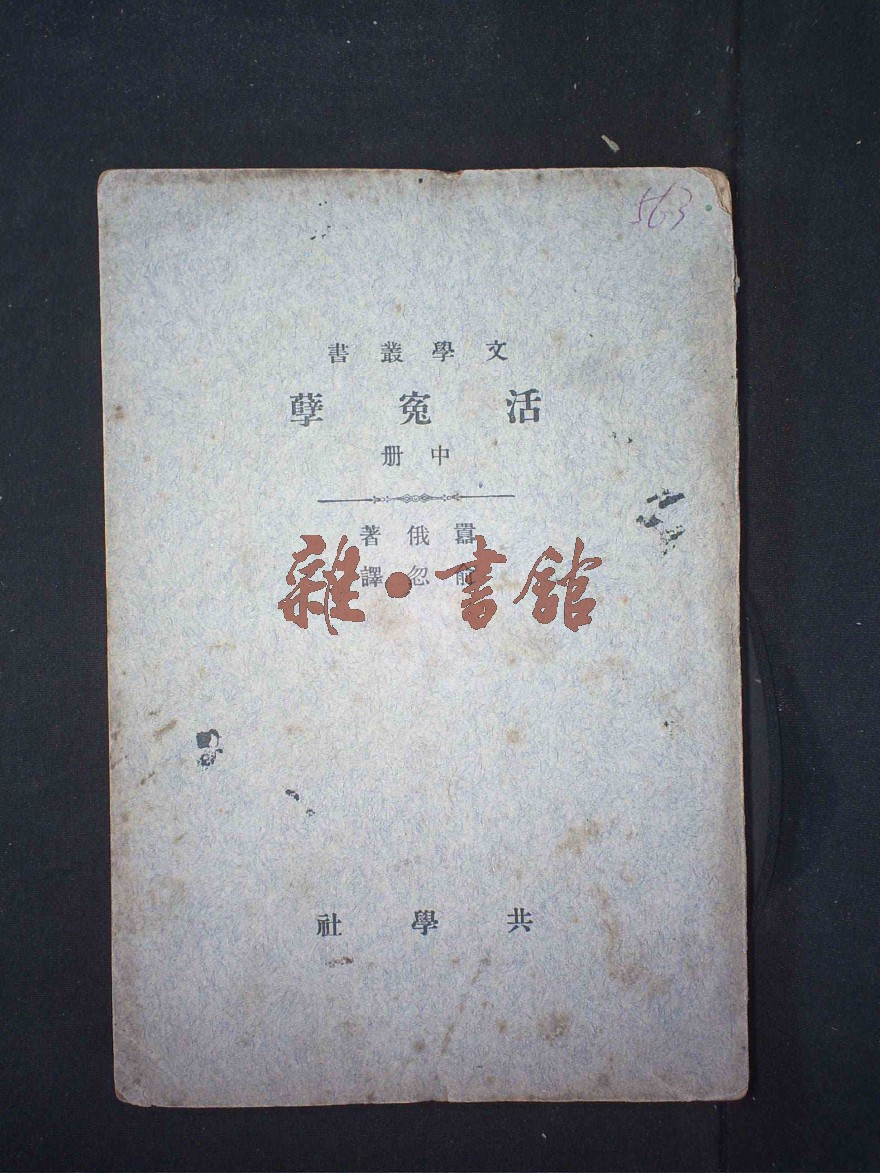 563
文學叢書
活冤孽
中册
囂俄著
俞忽譯
共學社
雜·書館